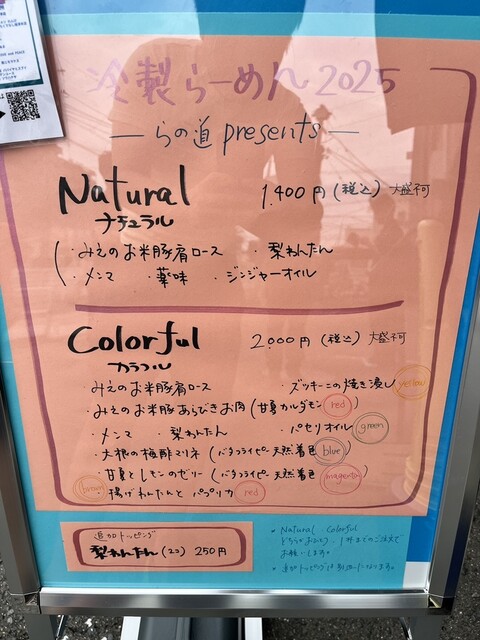 冷製らーめん2025
— らの道 presents —
Natural 1,400円(税込) 大盛不可
ナチュラル
・みえのお米豚肩ロース ・梨わんたん
・メンマ ・薬味 ・ジンジャーオイル
Colorful 2,000円(税込) 大盛不可
カラフル
・みえのお米豚肩ロース ・ズッキーニの焼き浸し yellow
・みえのお米豚あらびきお肉(甘夏カルダモン red)
・メンマ ・梨わんたん ・パセリオイル green
・大根の梅酢マリネ(バタフライピー天然着色 blue)
・甘夏とレモンのゼリー(バタフライピー天然着色 magenta)
brown 揚げわんたんと パプリカ red
追加トッピング
梨わんたん(2コ) 250円
・Natural Colorful
どちらかおひとり 1杯までのご注文で
お願いします。
・追加トッピングは別皿になります。